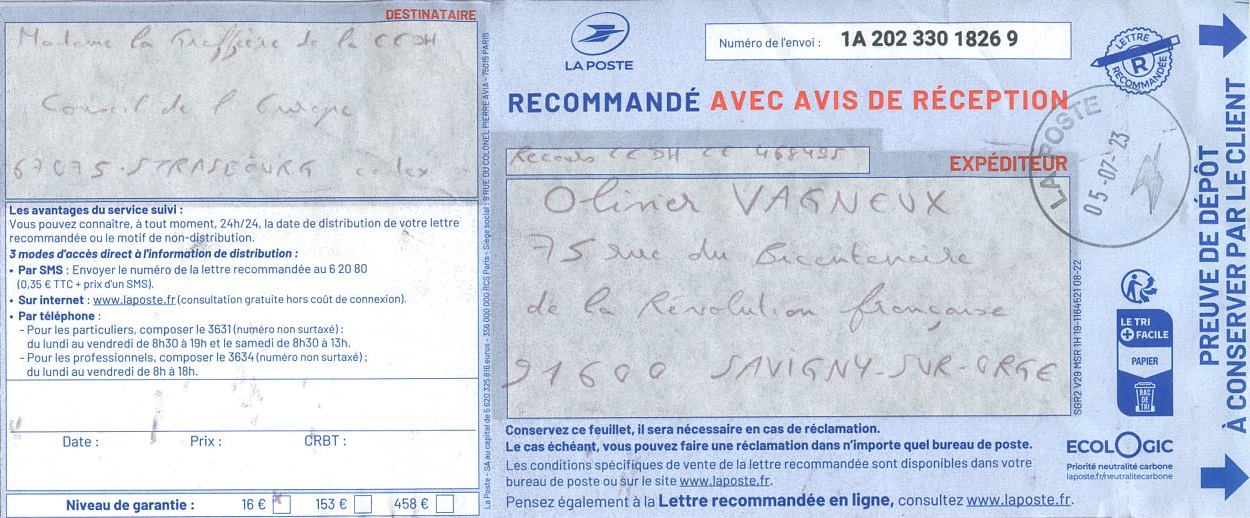 DESTINATAIRE
Madame la Greffière de la CEDH
Conseil de l'Europe
67075 - STRASBOURG Cedex
Les avantages du service suivi :
Vous pouvez connaître, à tout moment, 24h/24, la date de distribution de votre lettre
recommandée ou le motif de non-distribution.
3 modes d'accès direct à l'information de distribution :
• Par SMS : Envoyer le numéro de la lettre recommandée au 6 20 80
(0,35 € TTC + prix d'un SMS).
• Sur internet : www.laposte.fr (consultation gratuite hors coût de connexion).
• Par téléphone :
- Pour les particuliers, composer le 3631 (numéro non surtaxé) :
du lundi au vendredi de 8h30 à 19h et le samedi de 8h30 à 13h.
- Pour les professionnels, composer le 3634 (numéro non surtaxé) ;
du lundi au vendredi de 8h à 18h.
Date : Prix : CRBT :
Niveau de garantie : 16 € 153 € 458 €
La Poste - SA au capital de 5 620 325 816 euros - 356 000 000 RCS Paris - Siège social : 9 RUE DU COLONEL PIERRE AVIA - 75015 PARIS
LA POSTE
Numéro de l'envoi : 1A 202 330 1826 9
LETTRE
R
RECOMMANDÉE
RECOMMANDÉ AVEC AVIS DE RÉCEPTION
Recours CEDH CE 468495
EXPÉDITEUR
Olivier VAGNEUX
75 rue du Bicentenaire
de la Révolution française
91600 SAVIGNY-SUR-ORGE
LA POSTE
05-07-23
Conservez ce feuillet, il sera nécessaire en cas de réclamation.
Le cas échéant, vous pouvez faire une réclamation dans n'importe quel bureau de poste.
Les conditions spécifiques de vente de la lettre recommandée sont disponibles dans votre
bureau de poste ou sur le site www.laposte.fr.
Pensez également à la Lettre recommandée en ligne, consultez www.laposte.fr.
SGR2 V29 MSR 1H 19-1164521 08-22
LE TRI
+ FACILE
PAPIER
BAC
DE
TRI
ECOLOGIC
Priorité neutralité carbone
laposte.fr/neutralitecarbone
PREUVE DE DÉPÔT
À CONSERVER PAR LE CLIENT